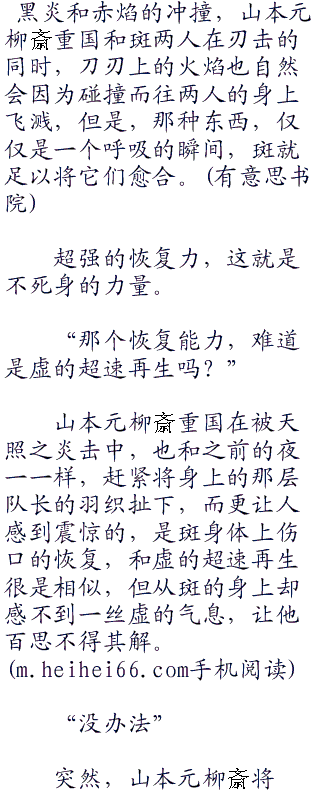 黑炎和赤焰的冲撞，山本元
柳斎重国和斑两人在刃击的
同时，刀刃上的火焰也自然
会因为碰撞而往两人的身上
飞溅，但是，那种东西，仅
仅是一个呼吸的瞬间，斑就
足以将它们愈合。(有意思书
院)
超强的恢复力，这就是
不死身的力量。
“那个恢复能力，难道
是虚的超速再生吗？”
山本元柳斎重国在被天
照之炎击中，也和之前的夜
一一样，赶紧将身上的那层
队长的羽织扯下，而更让人
感到震惊的，是斑身体上伤
口的恢复，和虚的超速再生
很是相似，但从斑的身上却
感不到一丝虚的气息，让他
百思不得其解。
(m.heihei66.com手机阅读)
“没办法”
突然，山本元柳斎将